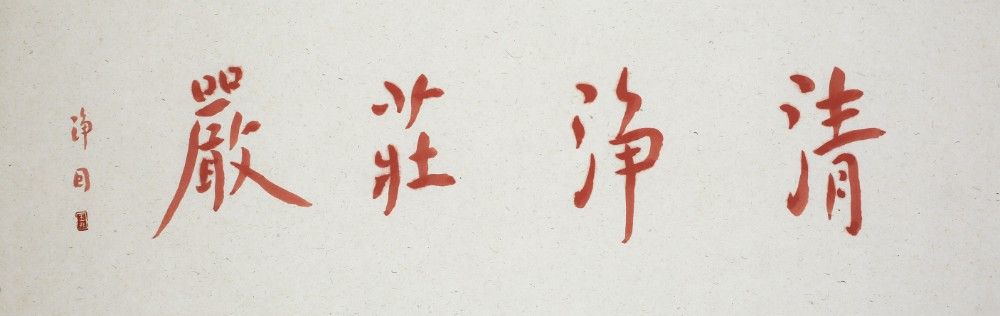 清淨莊嚴
淨因